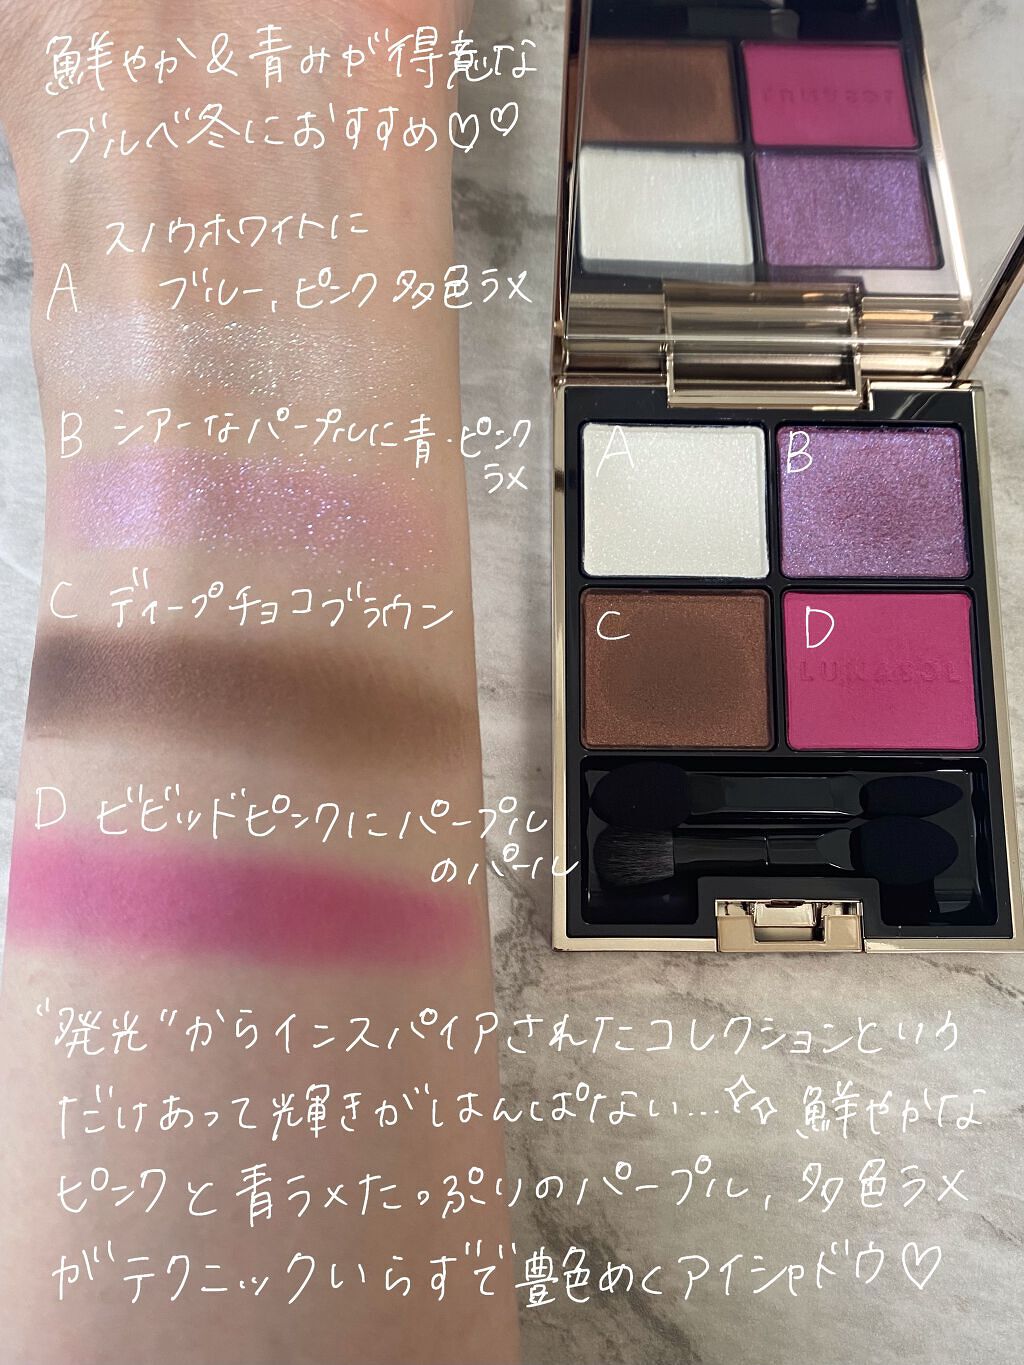 鮮やか&青みが得意な
ブルベ冬におすすめ♡♡
スノウホワイトに
A ブルー,ピンク多色ラメ
B シアーなパープルに青・ピンク
ラメ
C ディープチョコブラウン
D ビビッドピンクにパープル
のパール
A B
C D
LUNASOL
"発光"からインスパイアされたコレクションという
だけあって輝きがはんぱない…✧✧ 鮮やかな
ピンクと青ラメたっぷりのパープル,多色ラメ
がテクニックいらずで艶めくアイシャドウ♡